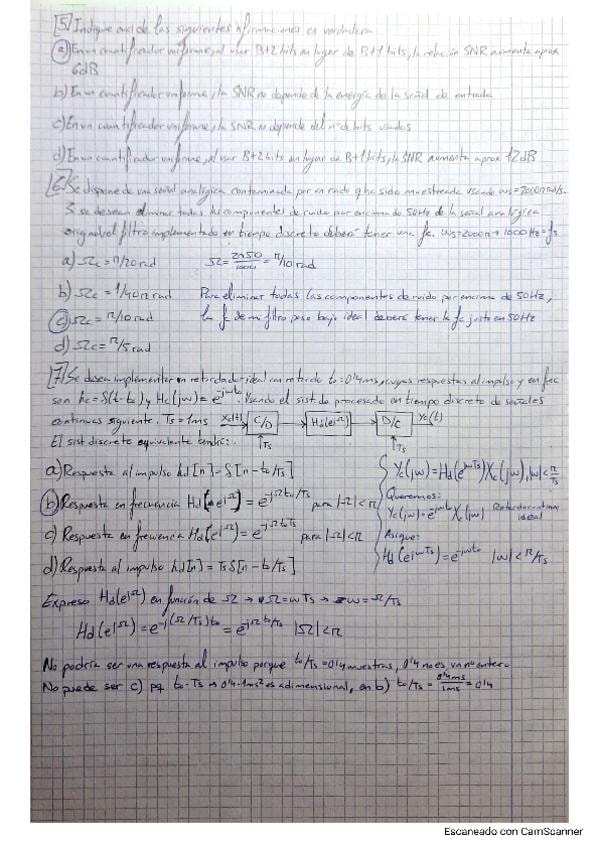 [5] Indique cual de las siguientes afirmaciones es verdadera
a) En un cuantificador uniforme, al usar B+2 bits en lugar de B+1 bits, la relación SNR aumenta aprox
6dB
b) En un cuantificador uniforme, la SNR no depende de la energía de la señal de entrada
c) En un cuantificador uniforme, la SNR no depende del nº de bits usados
d) En un cuantificador uniforme, al usar B+2 bits en lugar de B+1 bits, la SNR aumenta aprox 12dB
[6] Se dispone de una señal analógica contaminada por un ruido q ha sido muestreada usando ωs=2000π rad/s.
Si se desean eliminar todas las componentes de ruido por encima de 50Hz de la señal analógica
original el filtro implementado en tiempo discreto deberá tener una fc. ωs=2000π→1000Hz=fs
a) Ωc = π/20 rad Ω= 2π50/1000 = π/10 rad
b) Ωc = 1/40π rad Para eliminar todas las componentes de ruido por encima de 50Hz,
c) Ωc = π/10 rad la fc de mi filtro paso bajo ideal deberá tener la fc justo en 50Hz
d) Ωc = π/5 rad
[7] Se desea implementar un retardador ideal con retardo to=0'4ms, cuyas respuestas al impulso y en frec
son hc=δ(t-to) y Hc(jω)=e^-jωto. Usando el sist de procesado en tiempo discreto de señales
continuas siguiente. Ts=1ms Xc(t) C/D Hd(e^jΩ) D/C Yc(t)
El sist discreto equivalente tendrá: Ts Ts
a) Respuesta al impulso hd[n]=δ[n-to/Ts] Yc(jω)=Hd(e^jωTs)Xc(jω), |ω|<π/Ts
Queremos:
b) Respuesta en frecuencia Hd(e^jΩ)=e^-jΩto/Ts para |Ω|<π Yc(jω)=e^-jωto Xc(jω) Retardador ideal
c) Respuesta en frecuencia Hd(e^jΩ)=e^-jΩtoTs para |Ω|<π Asique:
d) Respuesta al impulso hd[n]=Tsδ[n-to/Ts] Hd(e^jωTs)=e^-jωto |ω|<π/Ts
Expreso Hd(e^jΩ) en función de Ω → Ω=ωTs → ω=Ω/Ts
Hd(e^jΩ)=e^-j(Ω/Ts)to=e^-jΩto/Ts |Ω|<π
No podría ser una respuesta al impulso porque to/Ts=0'4 muestras, 0'4 no es un nº entero
No puede ser c) pq to·Ts→0'4·1ms² es adimensional, en b) to/Ts = 0'4ms/1ms = 0'4
Escaneado con CamScanner